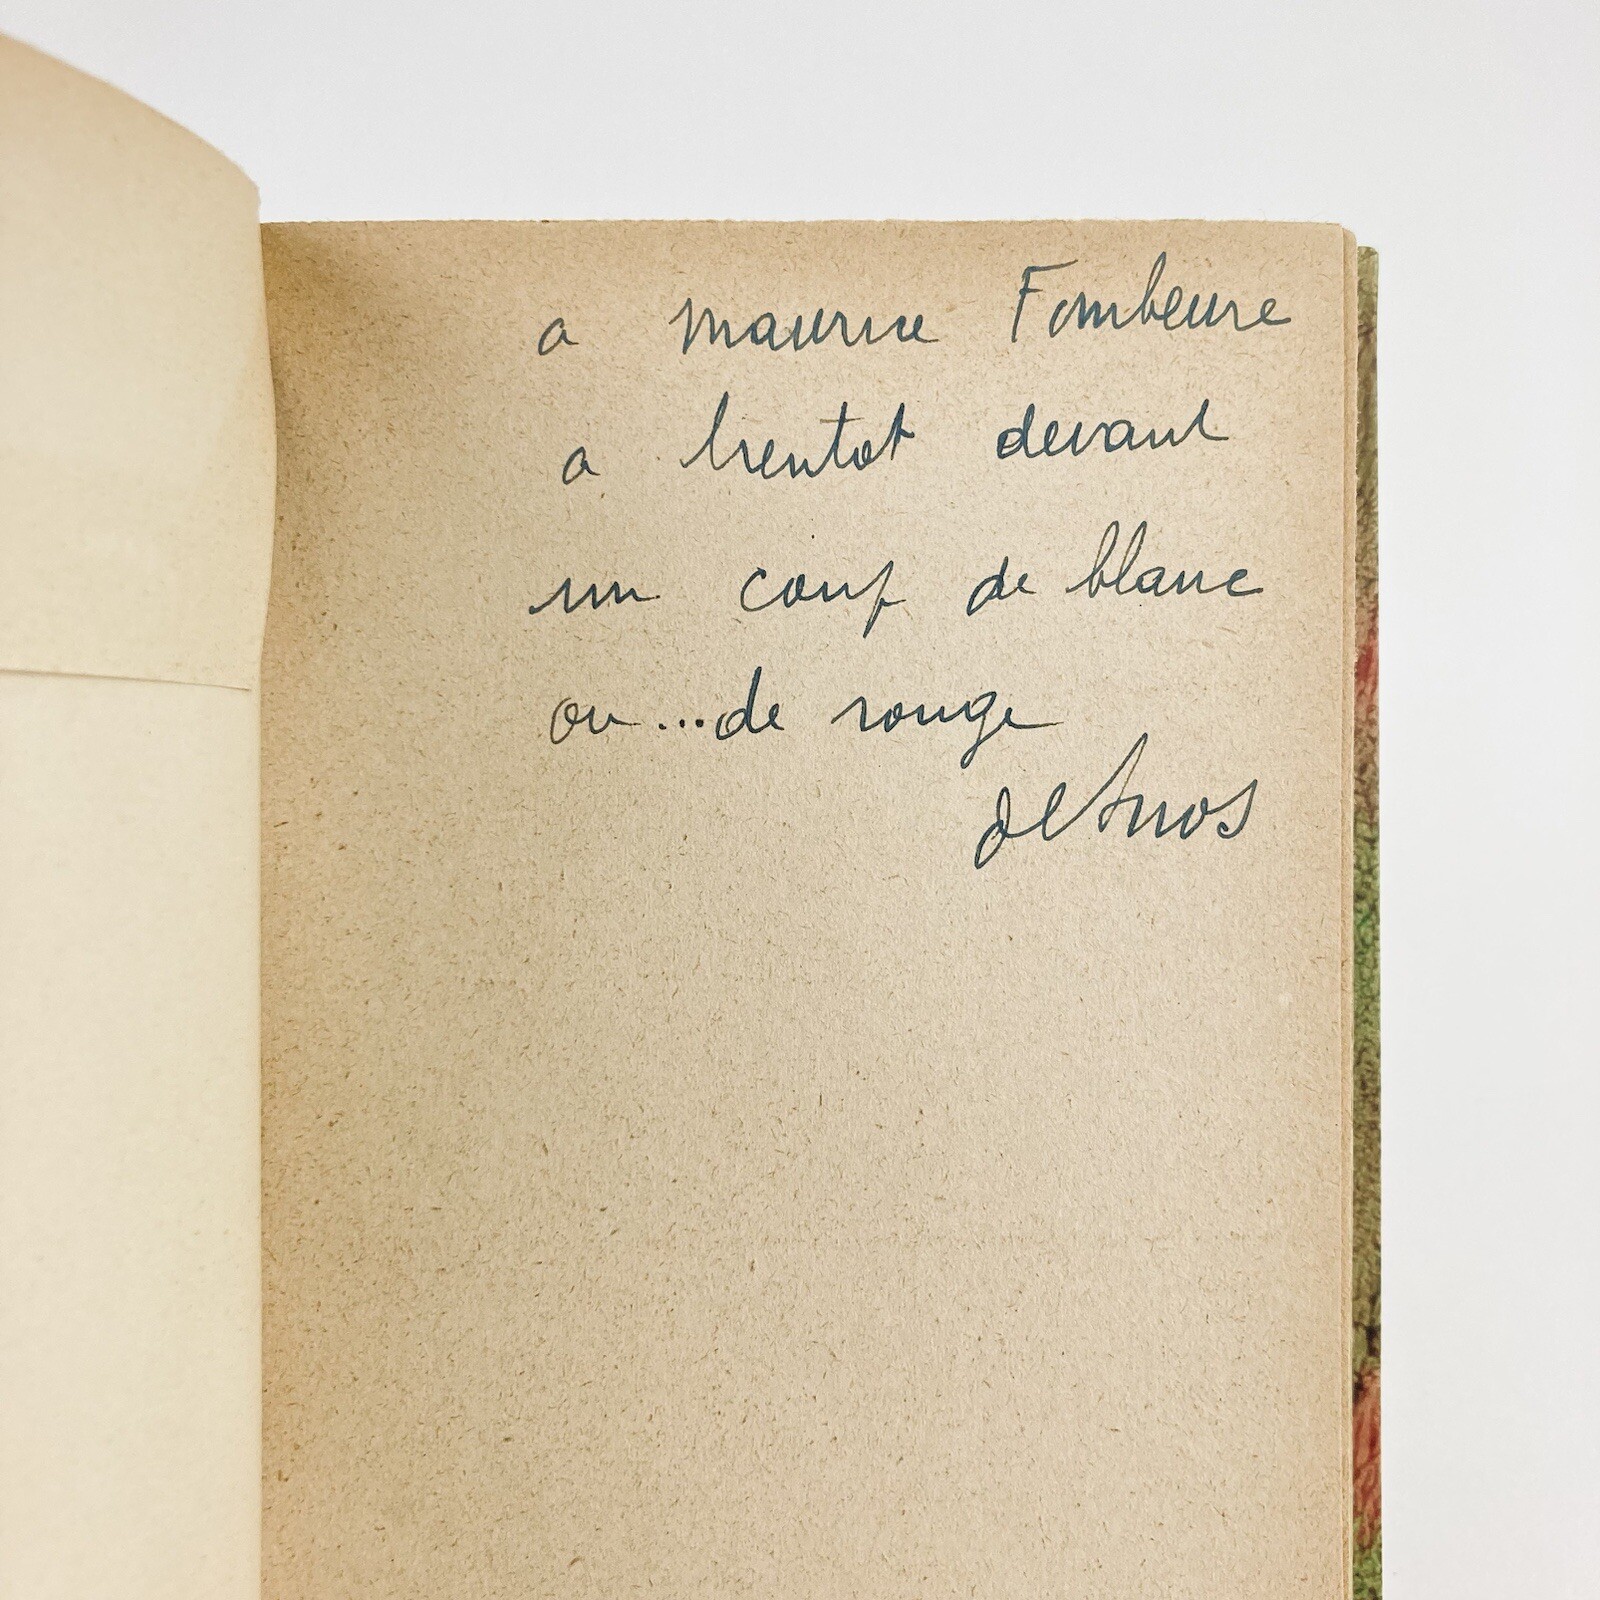 a Maurice Fombeure
a bientot devant
un coup de blanc
ou...de rouge
Desnos